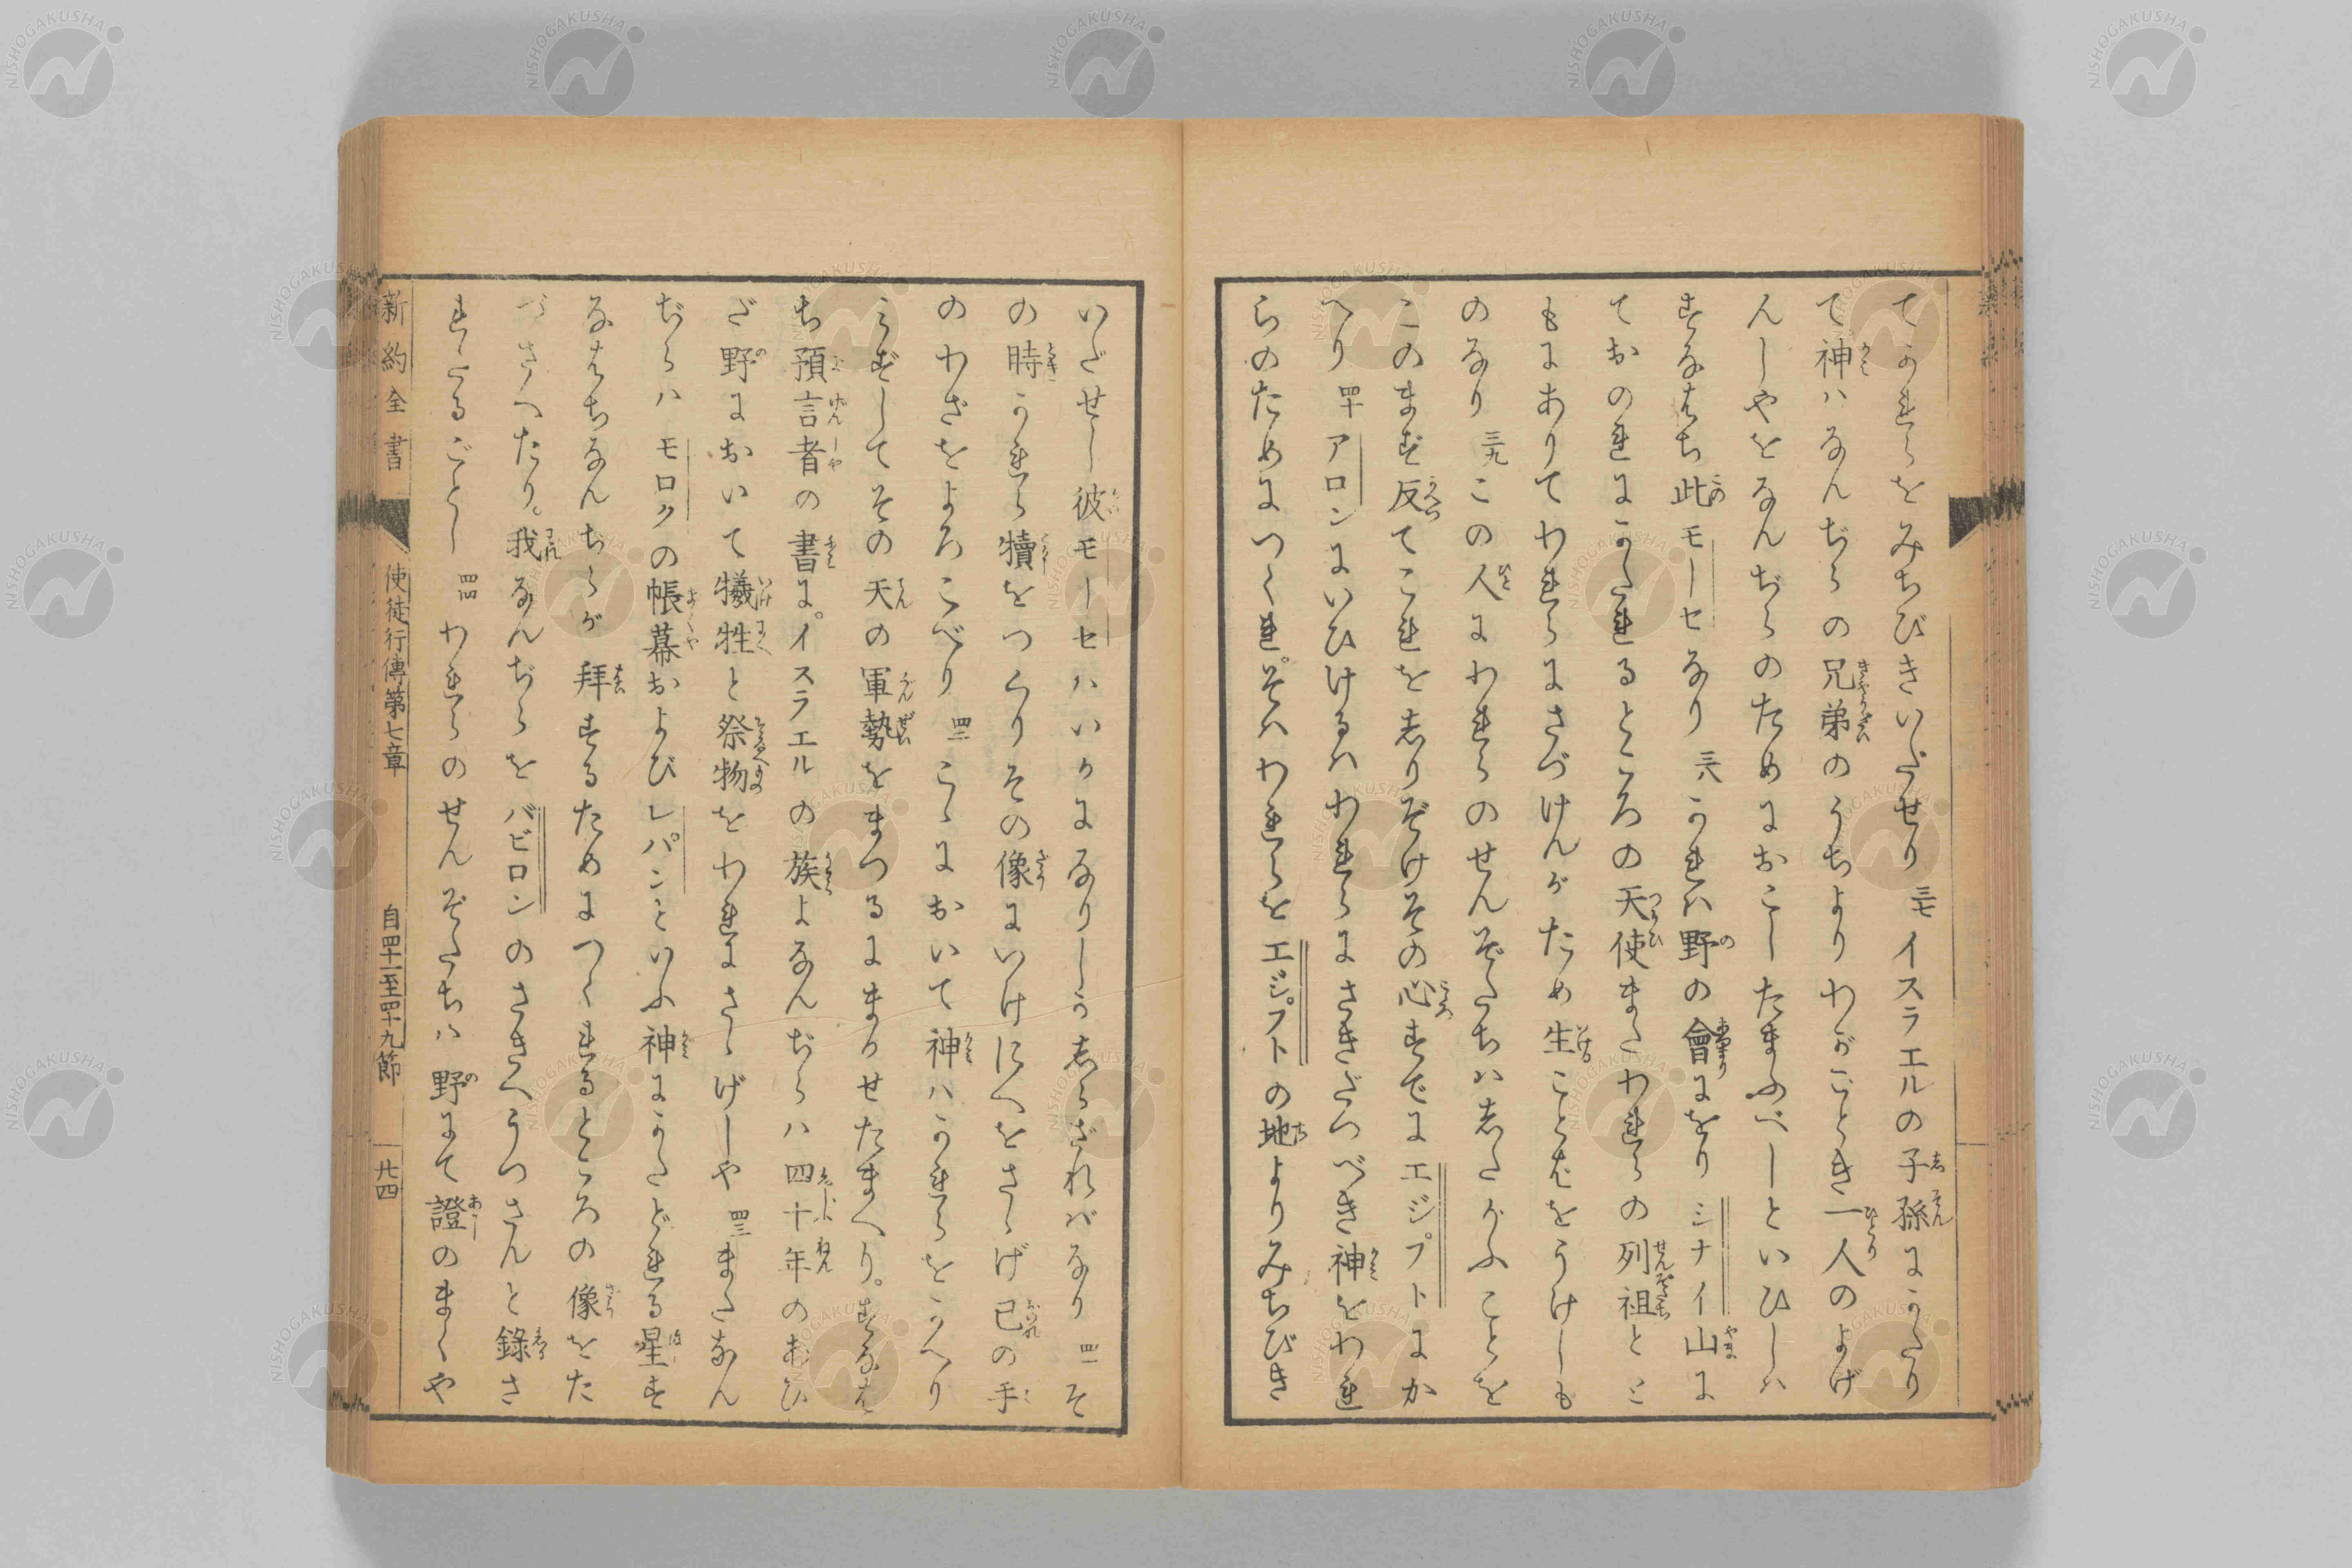 てかれらをみちびきいだせり 三七 イスラエルの子孫にかたり
て神ハなんぢらの兄弟のうちよりわがごとき一人のよげ
んしやをなんぢらのためにおこしたまふべしといひしハ
すなはち此モーセなり 三八 かれハ野の會にをりシナイ山に
ておのれにかたれるところの天使またわれらの列祖とと
もにありてわれらにさづけんがため生ことばをうけしも
のなり 三九 この人にわれらのせんぞたちハしたがふことを
このまず反てこれをしりぞけその心すでにエジプトにか
へり 四十 アロンにいひけるハわれらにさきだつべき神をわれ
らのためにつくれ。そハわれらをエジプトの地よりみちびき
いだせし彼モーセハいかになりしかしらざればなり 四一 そ
の時かれら犢をつくりその像にいけにへをさゝげ己の手
のわざをよろこべり 四二 こゝにおいて神ハかれらをかへり
みずしてその天の軍勢をまつるにまかせたまへり。すなは
ち預言者の書に。イスラエルの族よなんぢらハ四十年のあひ
だ野において犧牲と祭物をわれにさゝげしや 四三 またなん
ぢらハモロクの帳幕およびレパンといふ神にかたどれる星す
なはちなんぢらが拜するためにつくれるところの像をた
づさへたり。我なんぢらをバビロンのさきへうつさんと錄さ
れたるごとし 四四 われらのせんぞたちハ野にて證のまくや
新約全書 使徒行傳第七章 自四十一至四十九節 廿四
NISHOGAKUSHA